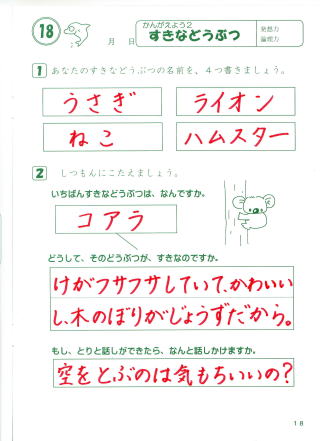 18
月 日
かんがえよう2
すきなどうぶつ
発想力
論理力
1 あなたのすきなどうぶつの名前を、4つ書きましょう。
うさぎ ライオン
ねこ ハムスター
2 しつもんにこたえましょう。
いちばんすきなどうぶつは、なんですか。
コアラ
どうして、そのどうぶつが、すきなのですか。
けがフサフサしていて、かわいい
し、木のぼりがじょうずだから。
もし、とりと話しができたら、なんと話しかけますか。
空をとぶのは気もちいいの?
18